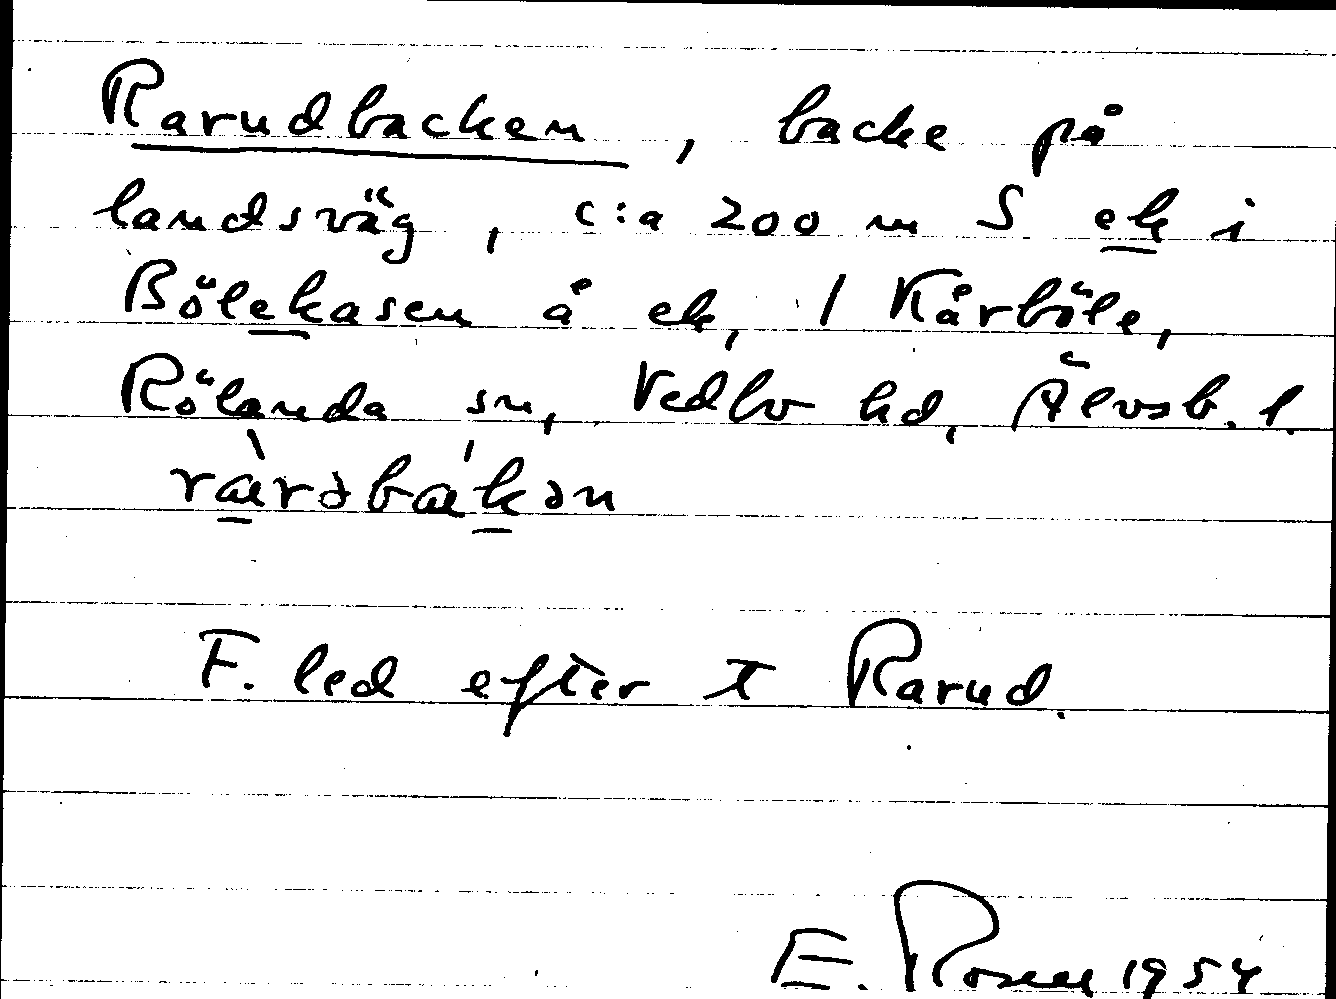 Rarudbacken, backe på
landsväg, c:a 200 m S ek i
Bölekasen å ek, 1 Kårböle,
Rölanda sn, Vedbo hd, Älvsb. l.
ræ̀rəbæ̀kən
F. led efter t Rarud.
E. Rosen 1954